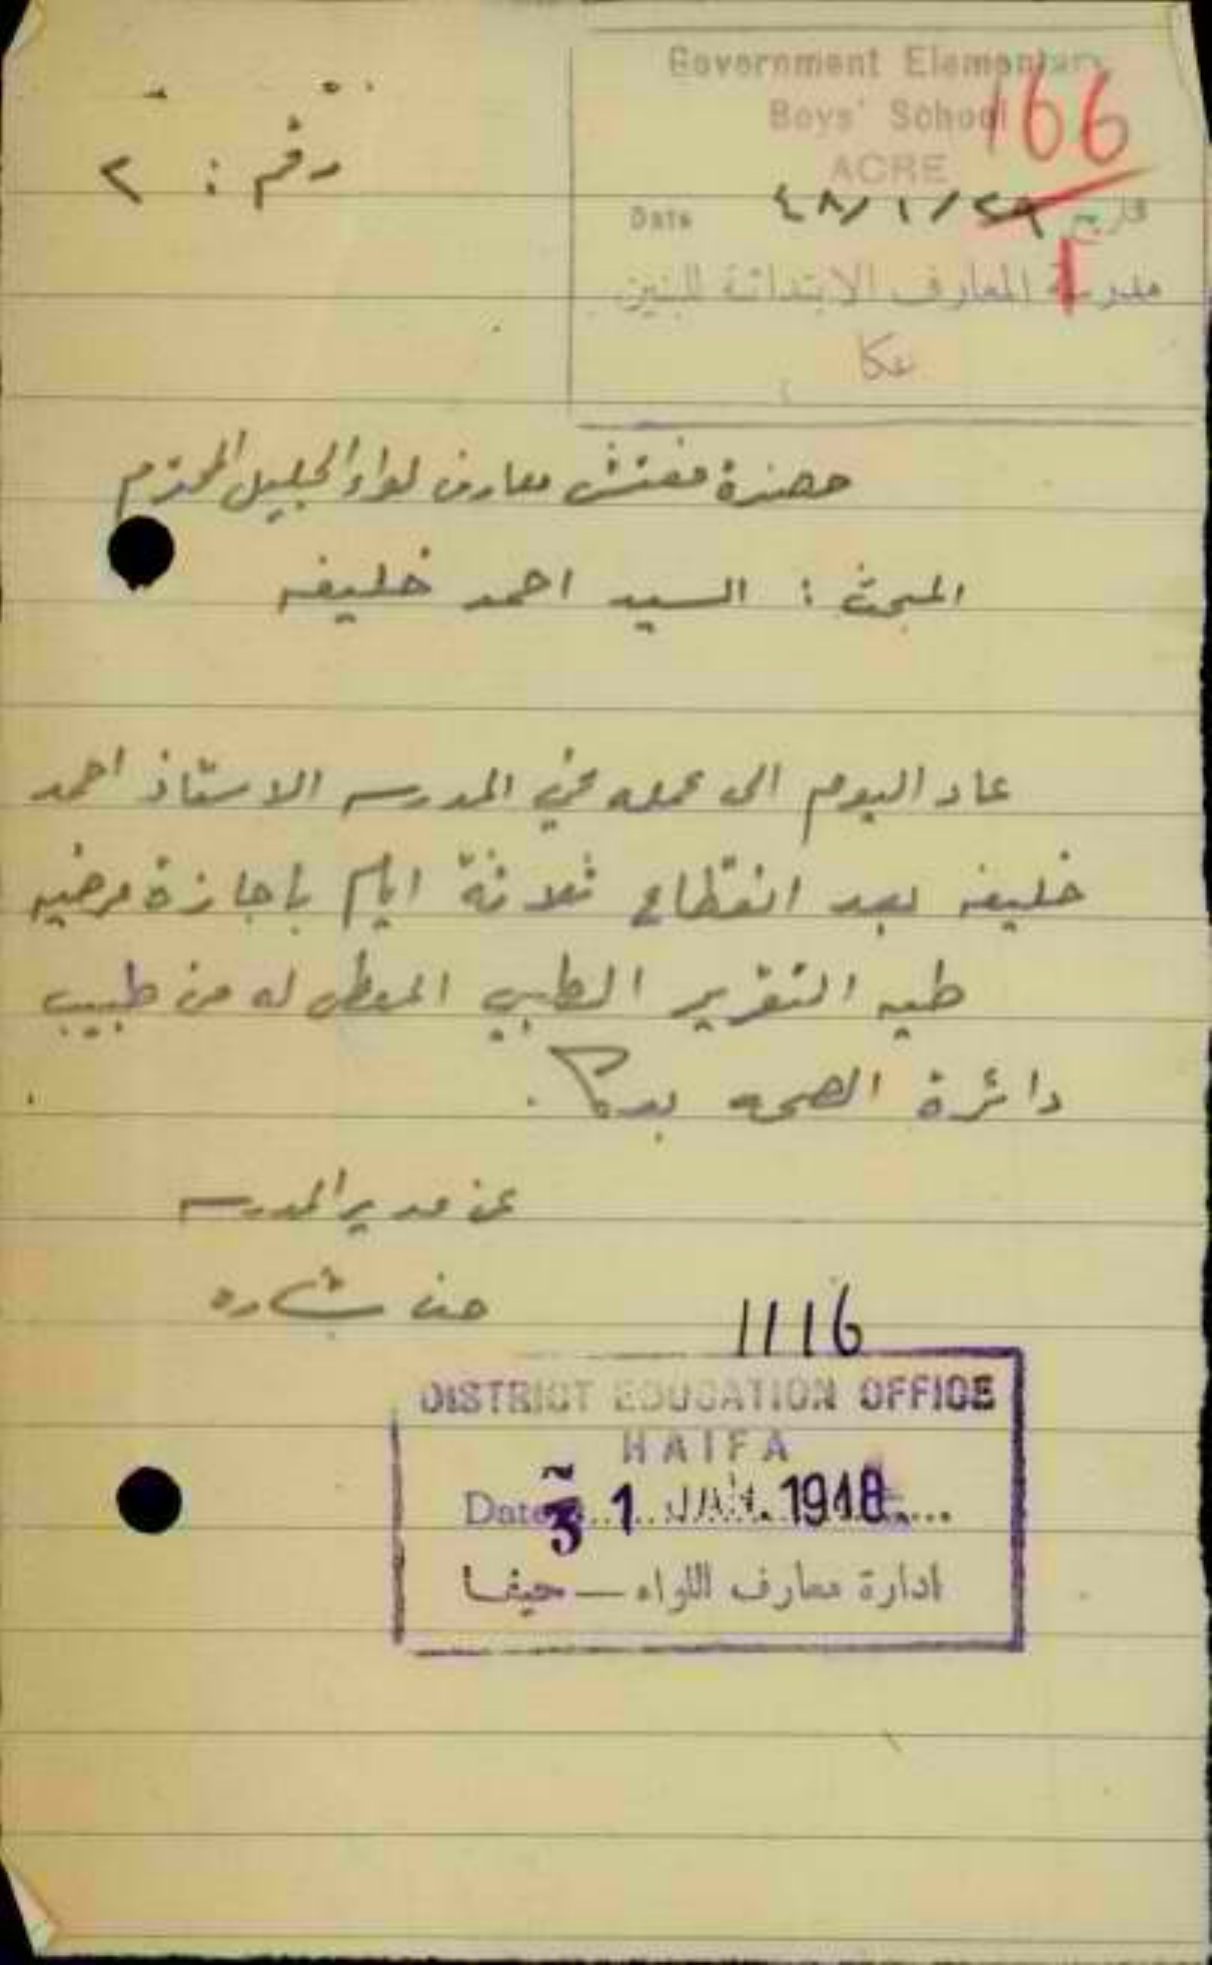 Government Elementary
Boys' School
166
ACRE
Date ٤٨/١/٢٩ تاريخ
مدرسة المعارف الابتدائية للبنين
عكا
رقم : ٢
حضرة مفتش معارف لواء الجليل المحترم
المبحث : السيد احمد خليفه
عاد اليوم الى عمله في المدرسه الاستاذ احمد
خليفه بعد انقطاع ثلاثة ايام باجازة مرضيه
طيه التقرير الطبي المعطى له من طبيب
دائرة الصحه بعكا .
عن مدير المدرسه
حنا بشاره
1116
DISTRICT EDUCATION OFFICE
HAIFA
Date 31 JAN. 1948
ادارة معارف اللواء — حيفا